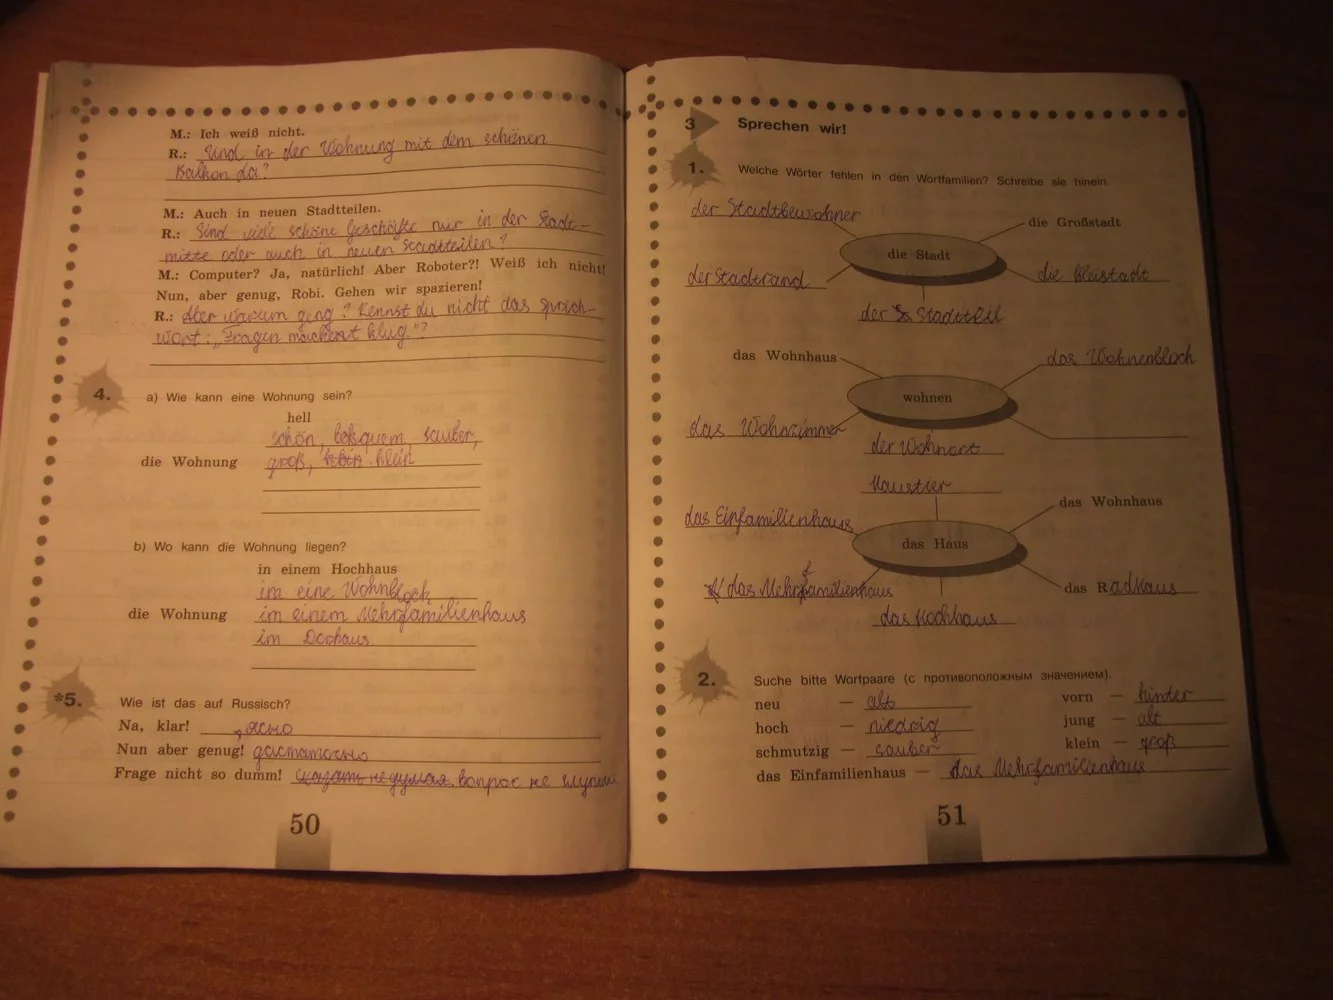 M.: Ich weiß nicht.
R.: Und in der Wohnung mit dem schönen
Balkon da?
M.: Auch in neuen Stadtteilen.
R.: Sind viele schöne Geschäfte nur in der Stadt-
mitte oder auch in neuen Stadtteilen?
M.: Computer? Ja, natürlich! Aber Roboter?! Weiß ich nicht!
Nun, aber genug, Robi. Gehen wir spazieren!
R.: Aber warum genug? Kennst du nicht das Sprich-
wort: „Fragen machent klug."?
4. a) Wie kann eine Wohnung sein?
hell
schön, bekquem, sauber,
die Wohnung groß, klein
b) Wo kann die Wohnung liegen?
in einem Hochhaus
im eine Wohnblock
die Wohnung im einem Mehrfamilienhaus
im Dorhaus
*5. Wie ist das auf Russisch?
Na, klar! ясно
Nun aber genug! дастаточно
Frage nicht so dumm! вопрос не глупый
50
3 Sprechen wir!
1. Welche Wörter fehlen in den Wortfamilien? Schreibe sie hinein.
der Stadtbewohner
die Großstadt
die Stadt
der Stadtrand
die Kleistadt
der Stadtteil
das Wohnhaus
das Wohnenbloch
wohnen
das Wohnzimmer
der Wohnort
Haustier
das Wohnhaus
das Einfamilienhaus
das Haus
das Mehrfamilienhaus
das Radhaus
das Hochhaus
2. Suche bitte Wortpaare (с противоположным значением).
neu — alt vorn — hinter
hoch — niedrig jung — alt
schmutzig — sauber klein — groß
das Einfamilienhaus — das Mehrfamilienhaus
51